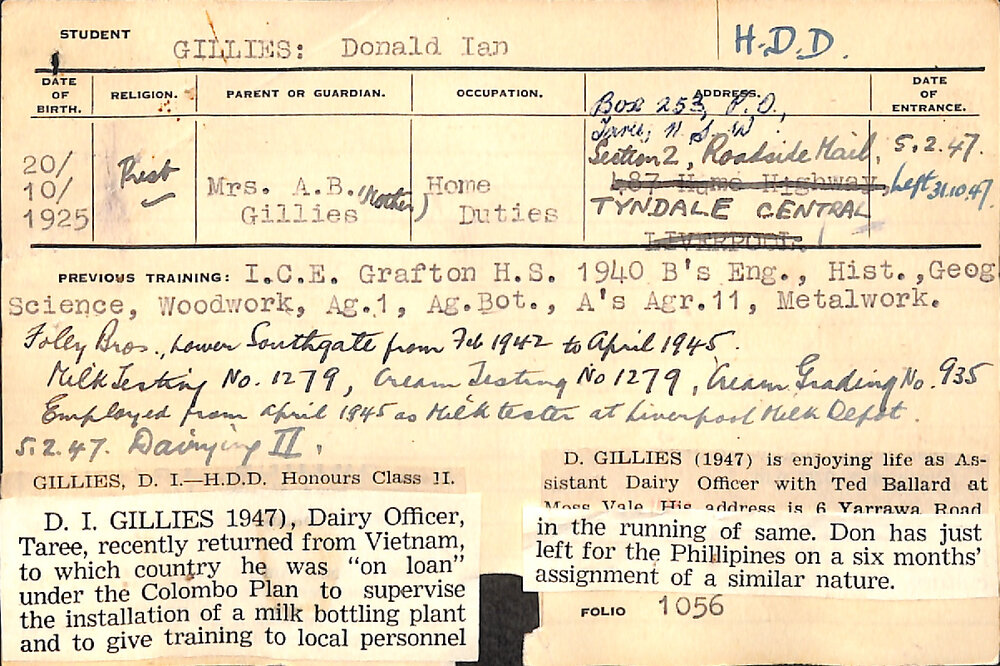 STUDENT GILLIES: Donald Ian H.D.D.
DATE OF BIRTH. RELIGION. PARENT OR GUARDIAN. OCCUPATION. ADDRESS. DATE OF ENTRANCE.
Box 253, P.O.,
Taree, N.S.W.
Section 2, Roadside Mail, 5.2.47.
20/ Prest Mrs. A.B. (Mother) Home 487 Hume Highway, Left 31.10.47.
10/ Gillies Duties TYNDALE CENTRAL
1925
LIVERPOOL.
PREVIOUS TRAINING: I.C.E. Grafton H.S. 1940 B's Eng., Hist., Geog
Science, Woodwork, Ag.1, Ag.Bot., A's Agr.11, Metalwork.
Folley Bros., Lower Southgate from Feb 1942 to April 1945.
Milk Testing No. 1279, Cream Testing No 1279, Cream Grading No. 935
Employed from April 1945 as Milk tester at Liverpool Milk Depot.
5.2.47. Dairying II.
GILLIES, D. I.—H.D.D. Honours Class II.
D. I. GILLIES 1947), Dairy Officer,
Taree, recently returned from Vietnam,
to which country he was "on loan"
under the Colombo Plan to supervise
the installation of a milk bottling plant
and to give training to local personnel
D. GILLIES (1947) is enjoying life as As-
sistant Dairy Officer with Ted Ballard at
Moss Vale. His address is 6 Yarrawa Road
in the running of same. Don has just
left for the Phillipines on a six months'
assignment of a similar nature.
FOLIO 1056